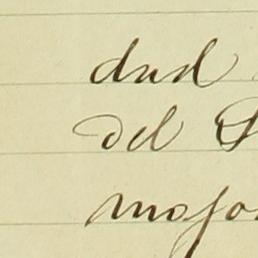 dad
del
mojo